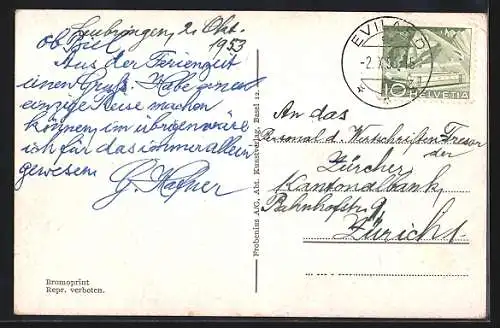 Leubringen, 2. Okt.
ob Biel 1953
Aus der Ferienzeit
einen Gruß. Habe nur
einzige Reise machen
können, im übrigen wäre
ich für das immer allein
gewesen.
G. Hafner
Bromoprint
Repr. verboten.
Frobenius A/G, Abt. Kunstverlag, Basel 12.
EVILARD
-2.X.53
10 HELVETIA
An das
Personal d. Wertschriften-Tresor
der
Zürcher
Kantonalbank,
Bahnhofstr. 9
Zürich 1.